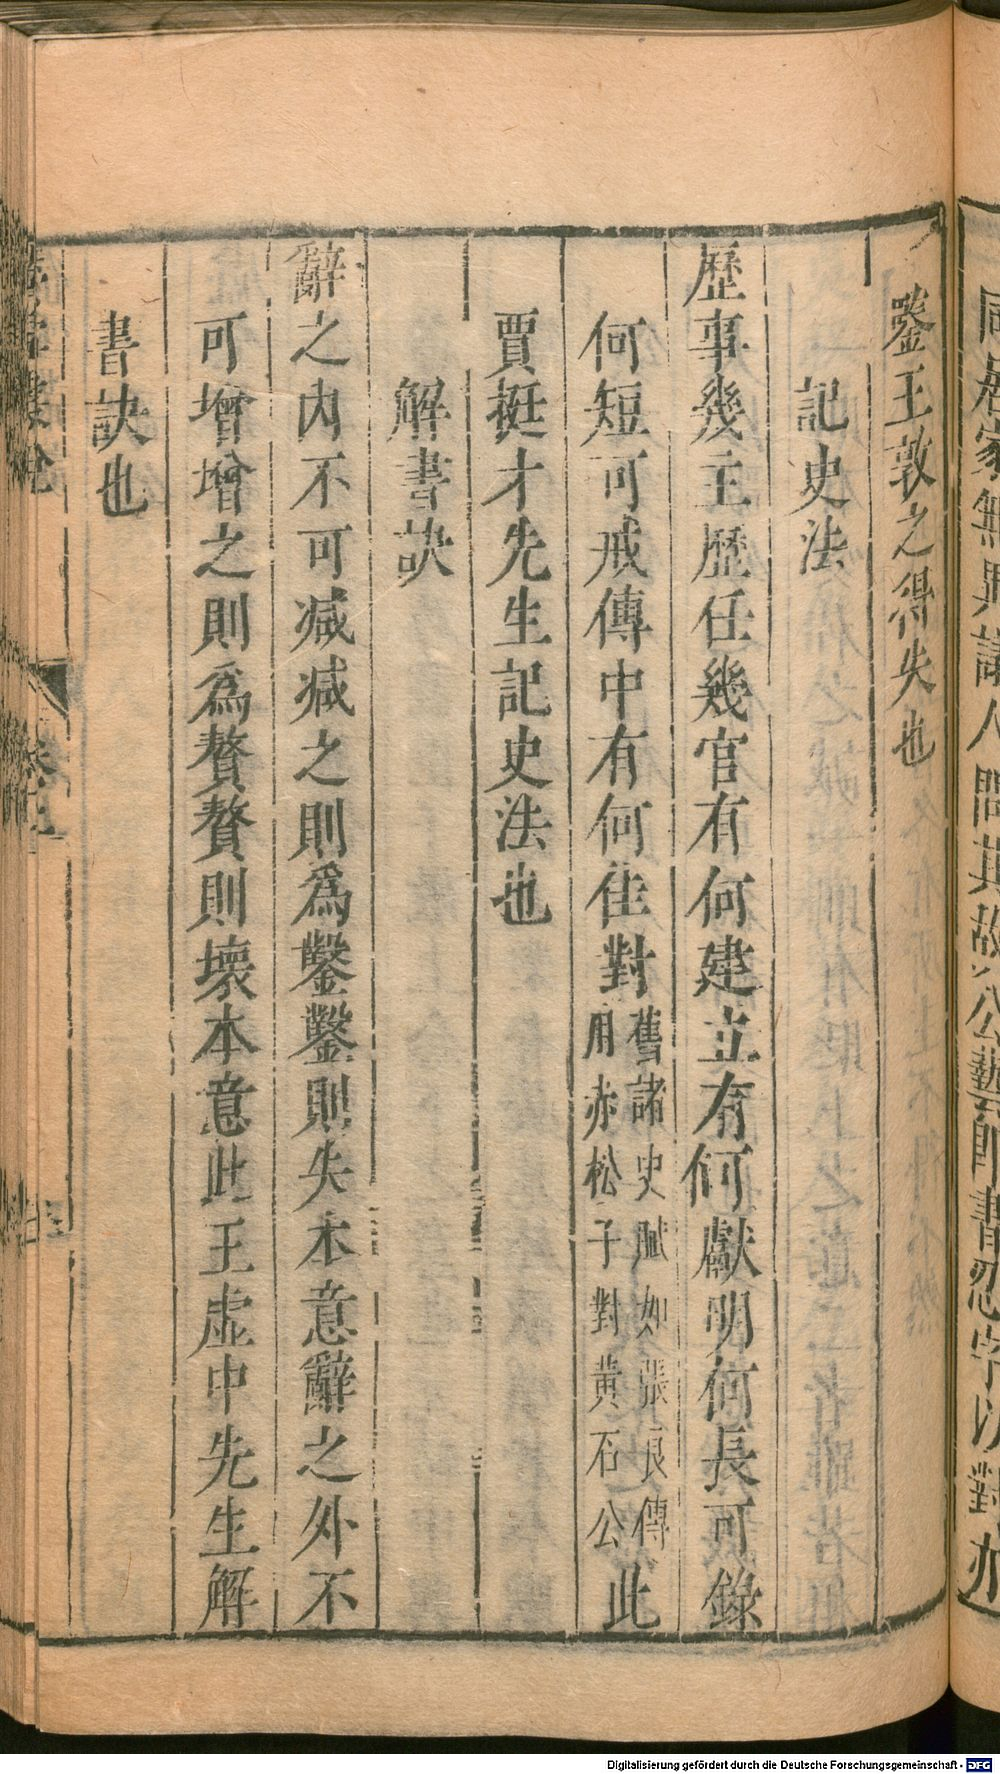 同居家無異議人問其故公藝卽書忍字以對亦
鑒王敦之得失也
記史法
歷事幾主歷任幾官有何建立有何獻明何長可錄
何短可戒傳中有何佳對舊諸史贓如張良傳用赤松子對黄石公此
賈挺才先生記史法也
解書訣
辭之内不可減減之則爲鑿鑿則失本意辭之外不
可增增之則爲贅贅則壞本意此王虛中先生解
書訣也
Digitalisierung gefördert durch die Deutsche Forschungsgemeinschaft - DFG